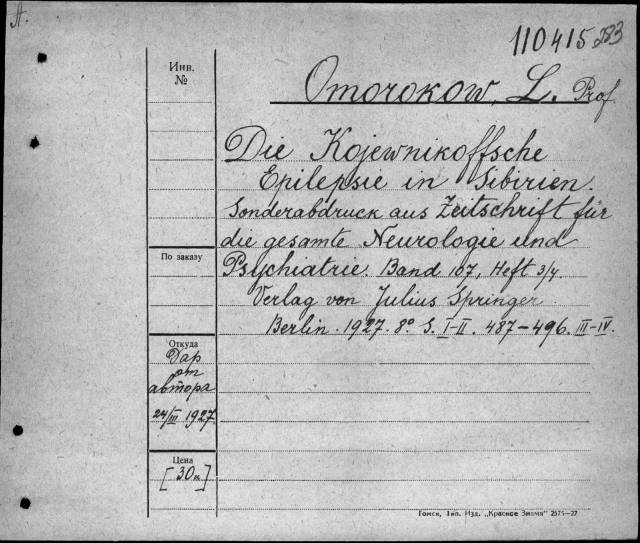 A.
110415 283
Инв.
№
Omorokow, L. Prof.
Die Kojewnikoffsche
Epilepsie in Sibirien.
Sonderabdruck aus Zeitschrift für
die gesamte Neurologie und
По заказу
Psychiatrie. Band 107, Heft 3/4
Verlag von Julius Springer
Berlin. 1927. 8° S. I-II. 487-496. III-IV.
Откуда
Дар
от
автора
24/III 1927.
Цена
[30к.]
Томск, Тип. Изд. „Красное Знамя" 2575—27